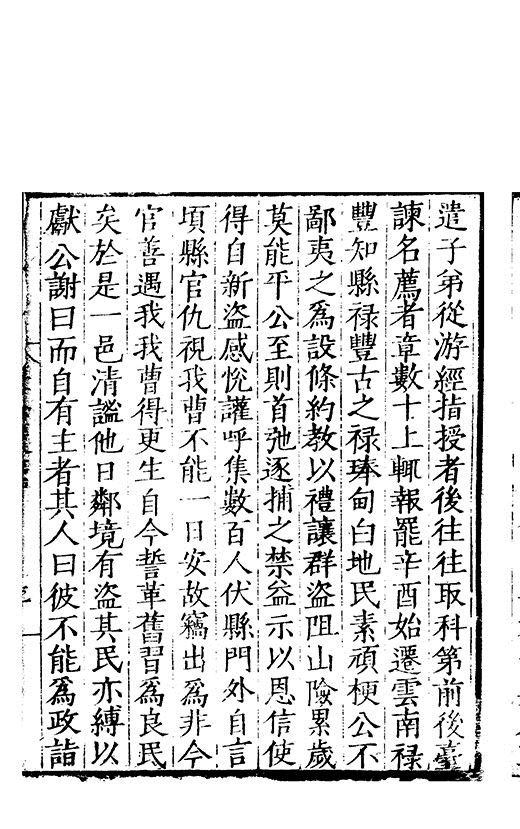 遣子弟從游經指授者後往往取科第前後臺
諫名薦者章數十上輒報罷辛酉始遷雲南祿
豐知縣祿豐古之祿琫甸白地民素頑梗公不
鄙夷之為設條約教以禮讓群盜阻山險累歲
莫能平公至則首弛逐捕之禁益示以恩信使
得自新盜感悅讙呼集數百人伏縣門外自言
頃縣官仇視我曹不能一日安故竊出為非今
官善遇我我曹得更生自今誓革舊習為良民
矣於是一邑清謐他日鄰境有盜其民亦縛以
獻公謝曰而自有主者其人曰彼不能為政詣